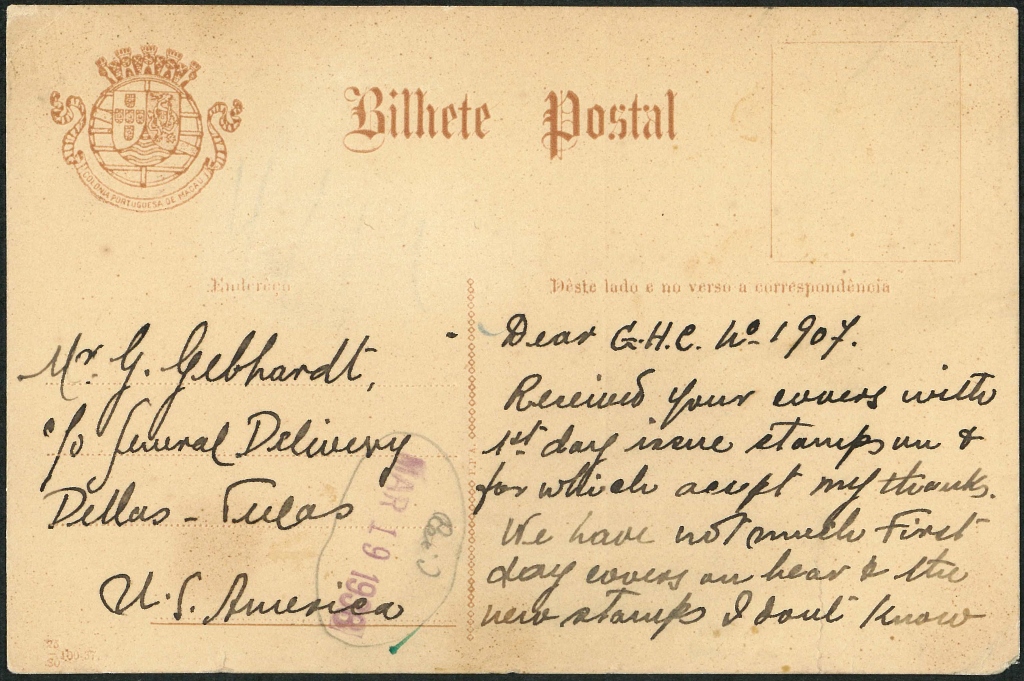 Bilhete Postal
COLONIA PORTUGUESA DE MACAU
Endereço
Dêste lado e no verso a correspondência
Mr. G. Gebhardt,
c/o General Delivery
Dellas - Tulas
U.S. America
MAR 19 1938
Rec'd
Dear G.H.C. No 1907.
Received your covers with
1st day issue stamps on &
for which acept my thanks.
We have not much First
day covers on hear & the
new stamps I dont Know